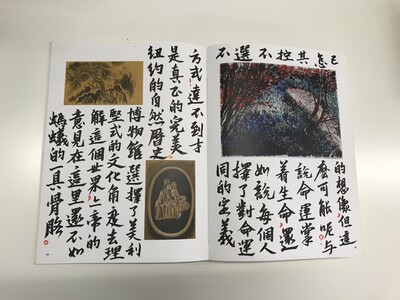 已的想像但這
怎麼可能呢与
其説命運掌
控着生命還
不如説每個人
選擇了對命運
不同的定義
方式達不到才
是真正的完美
紐約的自然曆史
博物館選擇了美利
堅式的文化角度去理
解這個世界上帝的
意見在這里還不如
螞蟻的一具骨骸